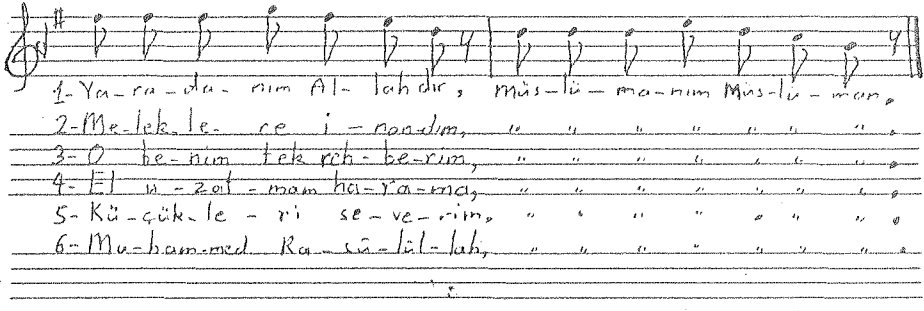 1- Ya-ra-da-nım Al-lahdır, Müs-lü-ma-nım Müs-lü-man,
2- Me-lek-le-re i-nandım, " " " " " " " .
3- O be-nim tek reh-be-rim, " " " " " " " .
4- El u-zat-mam ha-ra-ma, " " " " " " " .
5- Kü-çük-le-ri se-ve-rim, " " " " " " " .
6- Mu-ham-med Ra-sü-lül-lah, " " " " " " " .